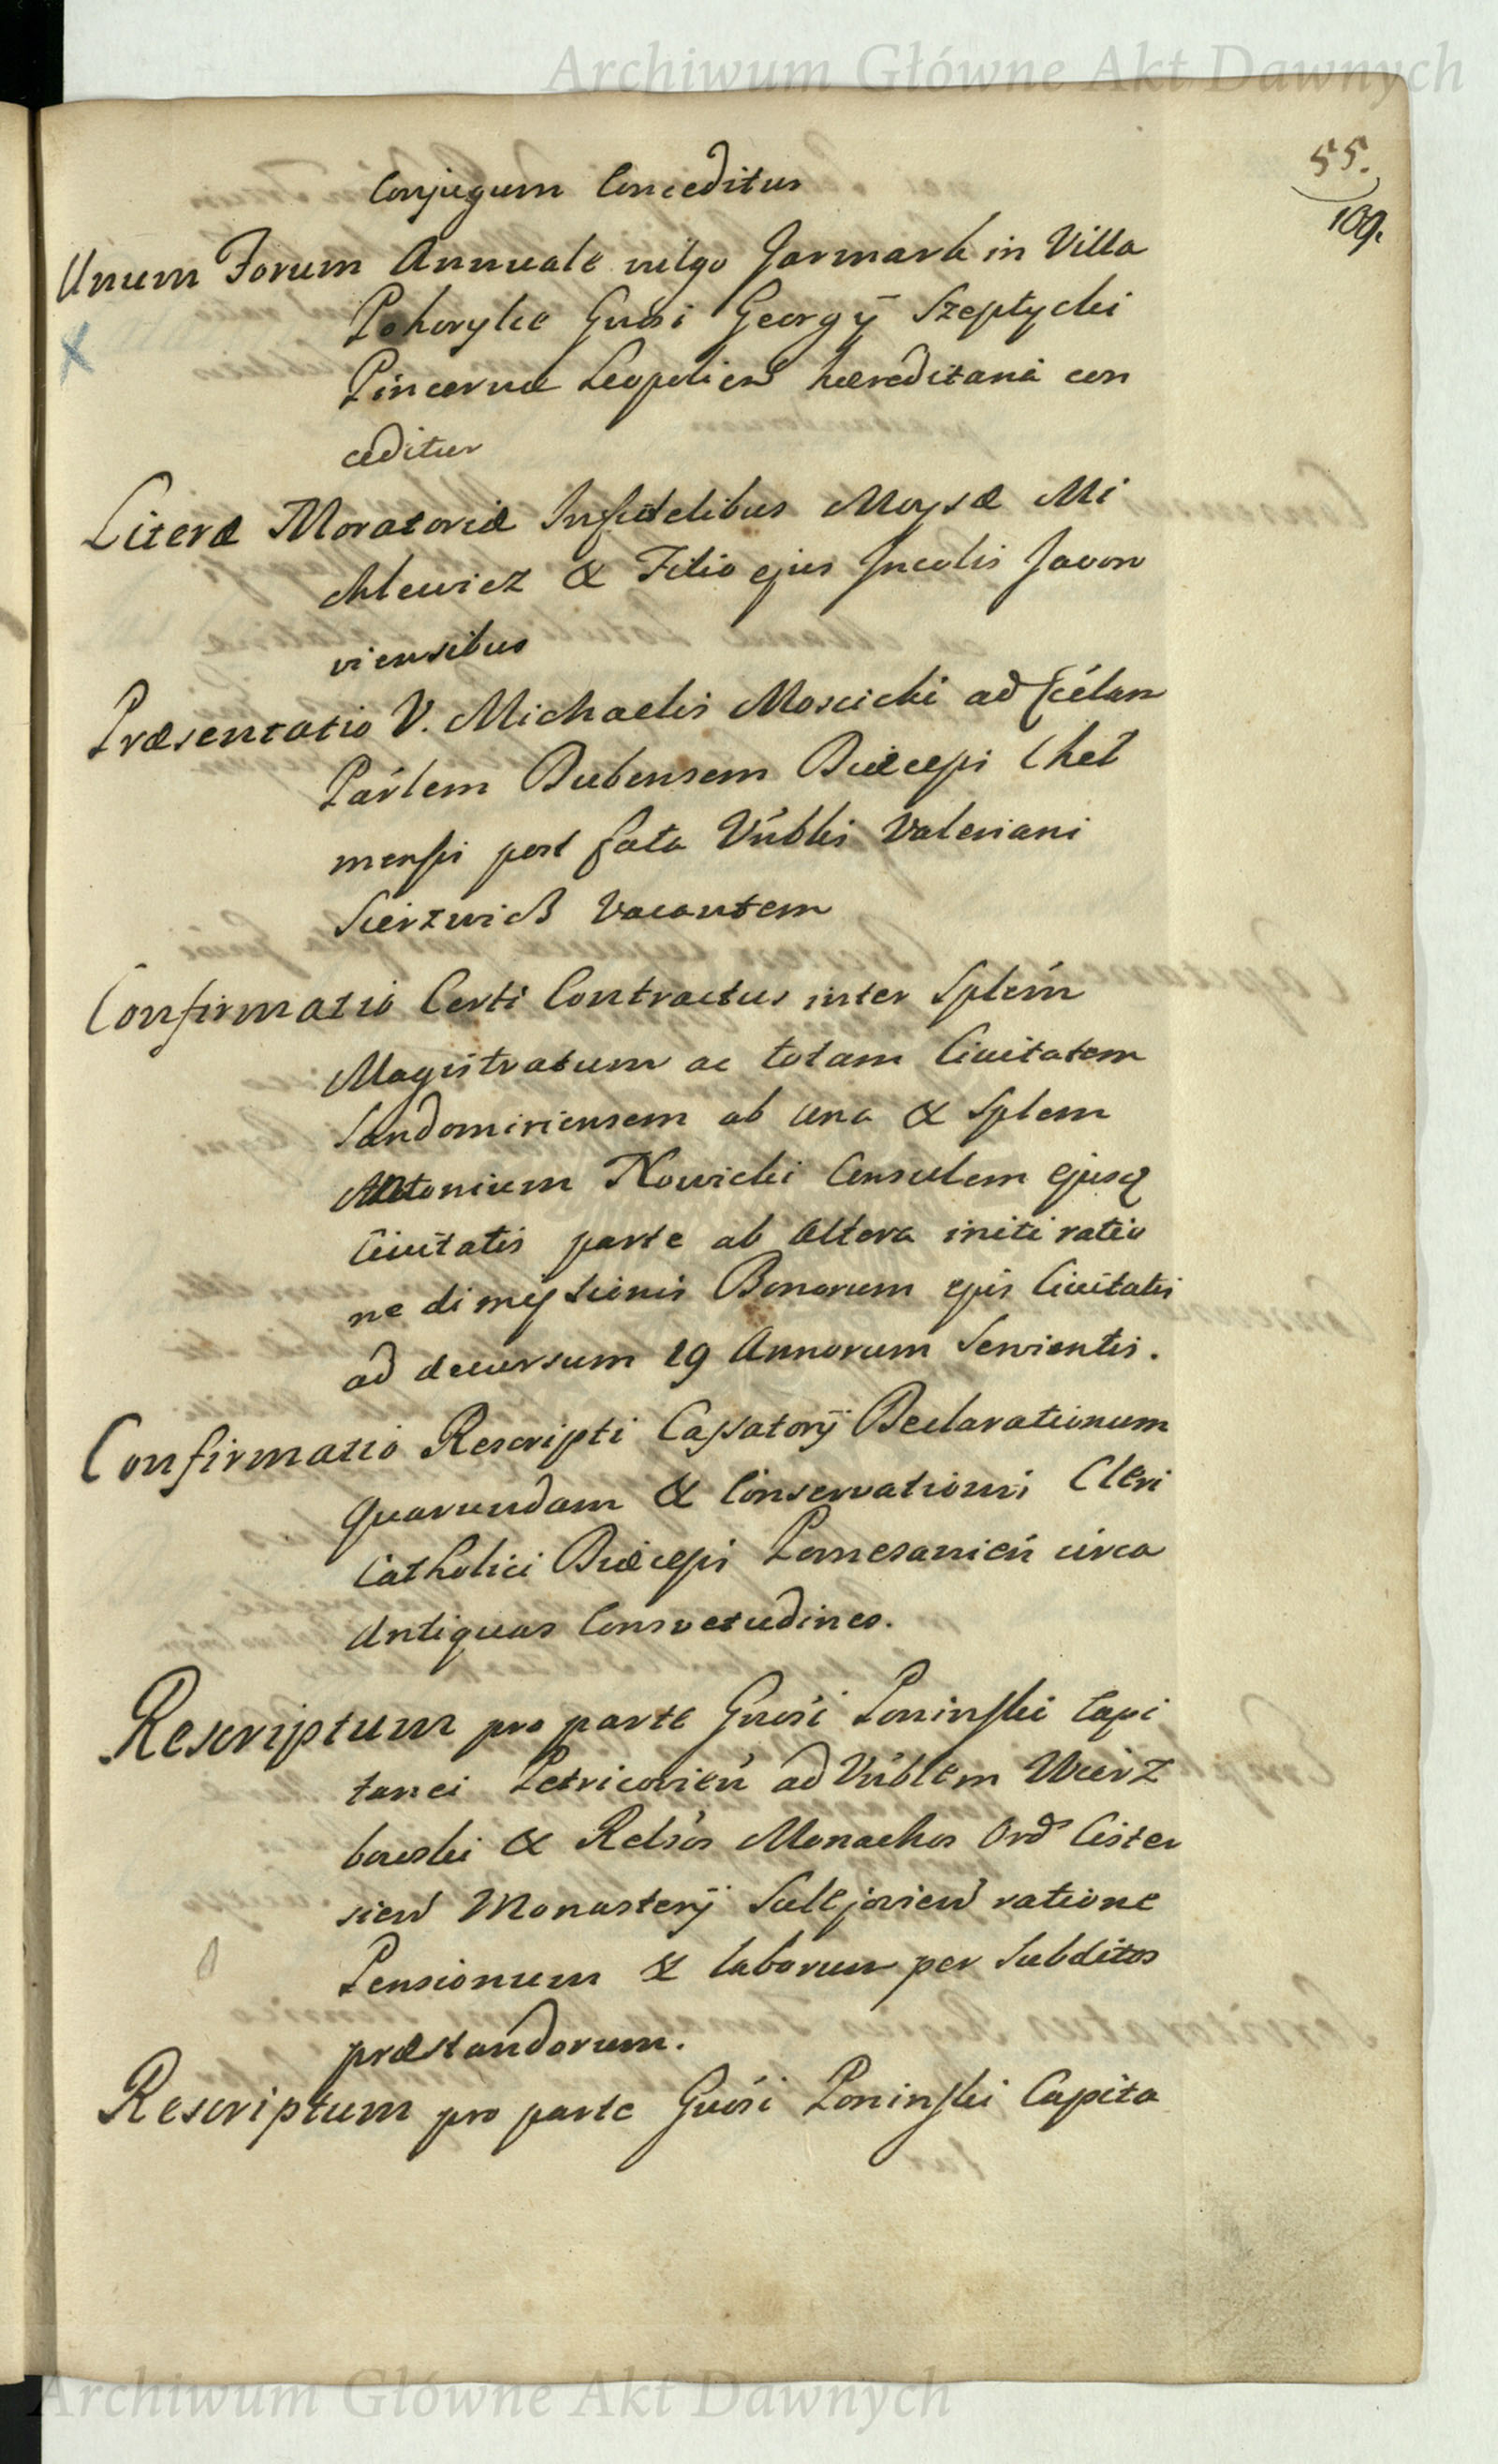 Archiwum Główne Akt Dawnych
55.
109.
Conjugum Conceditur
Unum Forum Annuale vulgo Jarmark in Villa
Pohorylce Gnosi Georgÿ Szeptycki
Pincernæ Leopolien hæreditaria con
ceditur
Literæ Moratoriæ Infidelibus Moysæ Mi
chlewicz & Filio ejus Incolis Javoro
viensibus
Præsentatio V. Michaelis Moscicki ad Ecclam
Parlem Bubensem Diæcepi Chel
mensis post fata Vnblis Valeriani
vacantem
Confirmatio Certi Contractus inter Splem
Magistratum ac totam Civitatem
Sandomiriensem ab una & Splem
Antonium Nowicki Consulem ejusq
Civitatis parte ab altera initi ratio
ne dimissionis Bonorum ejus Civitatis
ad decursum 19 Annorum Servientis.
Confirmatio Rescripti Cassatorÿ Declarationum
quarundam & Conservationis Cleri
Catholici Diæcesis Pomesanien circa
Antiquas Consvetudines.
Rescriptum pro parte Gnosi Poninski Capi
tanei Petricovien ad Vnblem Wierz
bowski & Relsos Monachos Ord Cister
sien Monasterÿ Sulejovien ratione
Pensionum & laborum per Subditos
præstandorum.
Rescriptum pro parte Gnosi Poninski Capita
Archiwum Główne Akt Dawnych